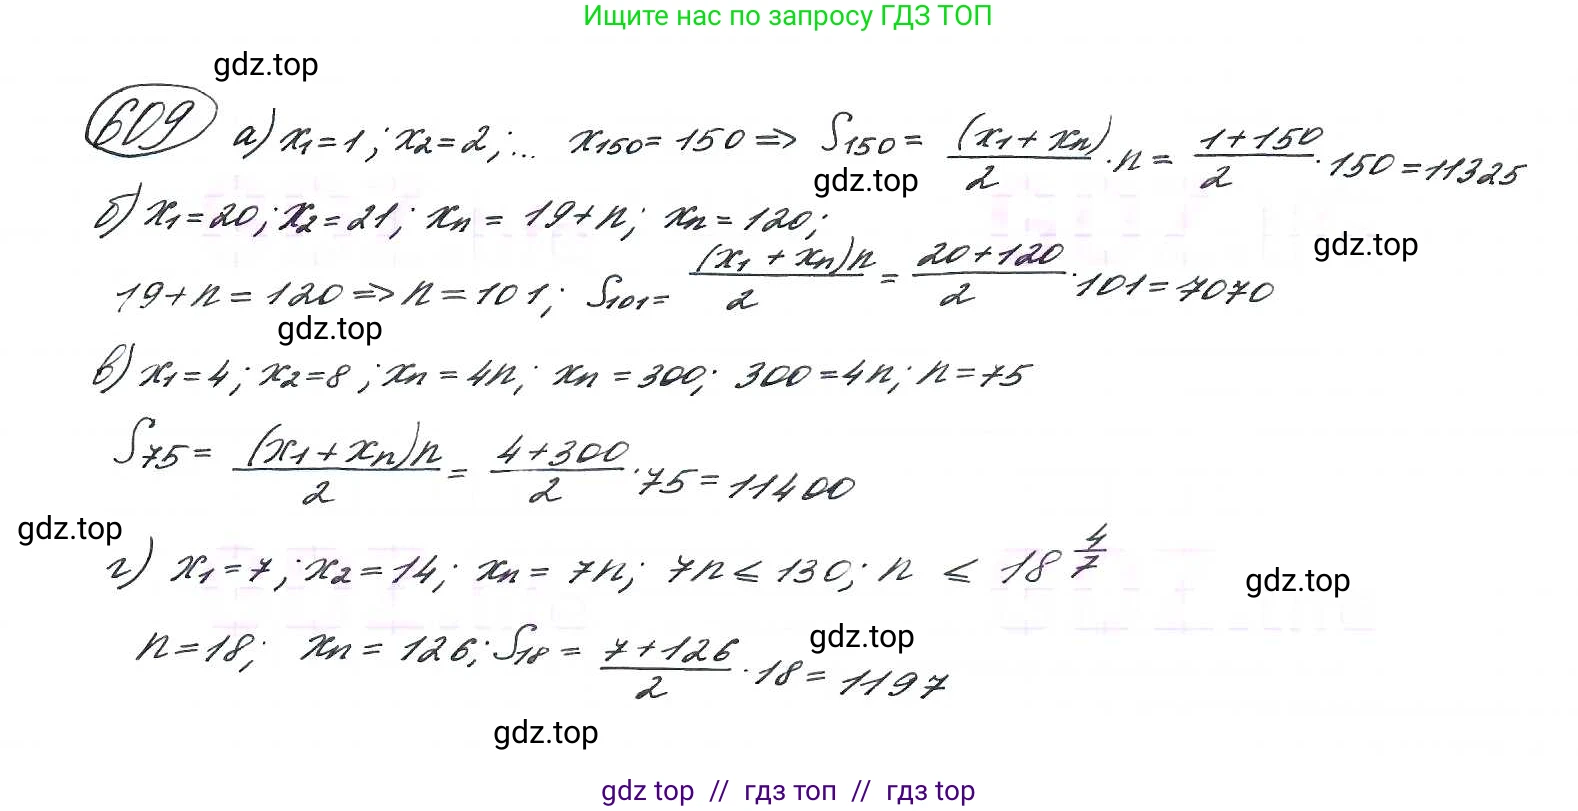 Ищите нас по запросу ГДЗ ТОП
gdz.top
609 а) x₁=1; x₂=2;... x₁₅₀=150 => S₁₅₀= (x₁+xₙ)/2 · n = (1+150)/2 · 150 = 11325
gdz.top
б) x₁=20; x₂=21; xₙ = 19+n; xₙ=120;
gdz.top
19+n=120 => n=101; S₁₀₁= (x₁+xₙ)n/2 = (20+120)/2 · 101 = 7070
gdz.top
в) x₁=4; x₂=8; xₙ=4n; xₙ=300; 300=4n; n=75
S₇₅= (x₁+xₙ)n/2 = (4+300)/2 · 75 = 11400
gdz.top
г) x₁=7; x₂=14; xₙ=7n; 7n≤130; n ≤ 18 4/7
gdz.top
n=18; xₙ=126; S₁₈= (7+126)/2 · 18 = 1197
gdz.top
gdz.top
gdz top // гдз топ // gdz top